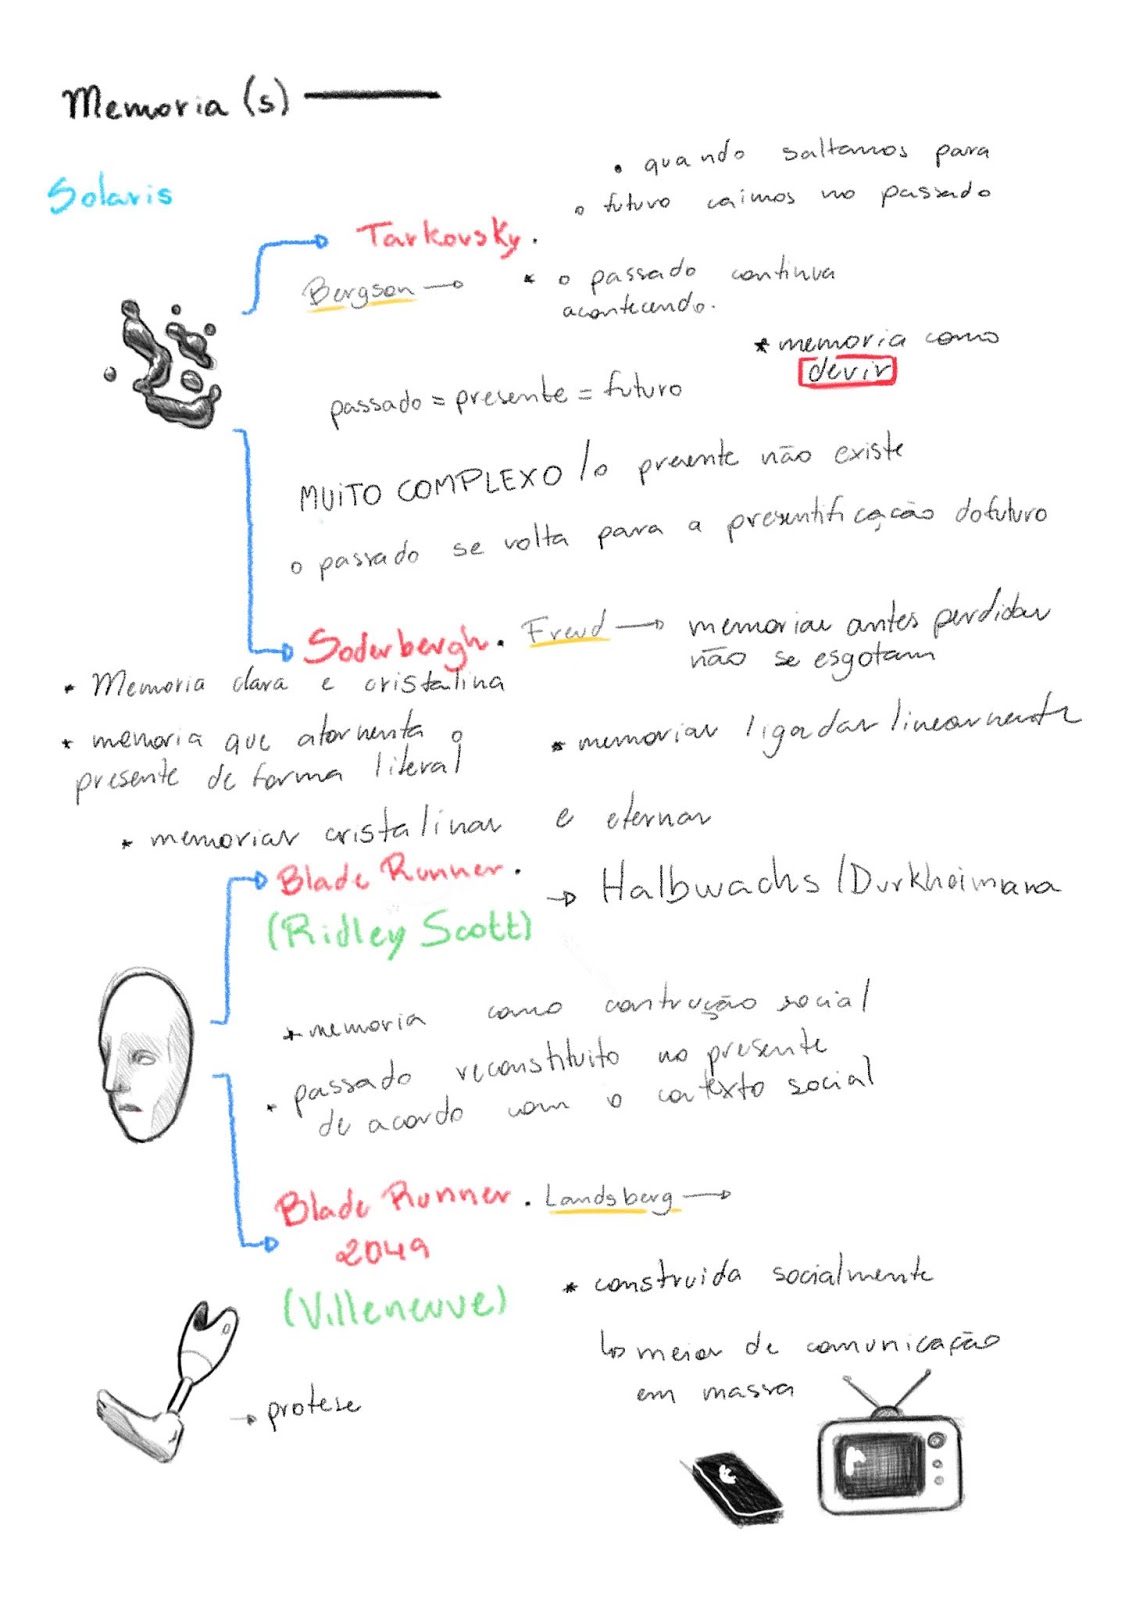 Memoria (s)
Solaris
• quando saltamos para
o futuro caimos no passado
Tarkovsky.
Bergson →
* o passado continua
acontecendo.
* memoria como
devir
passado = presente = futuro
MUITO COMPLEXO / o presente não existe
o passado se volta para a presentificação do futuro
Soderbergh. Freud → memorias antes perdidas
não se esgotam
* Memoria clara e cristalina
* memoria que atormenta o
presente de forma literal
* memorias ligadas linearmente
* memorias cristalinas e eternas
Blade Runner.
→ Halbwachs / Durkheimana
(Ridley Scott)
* memoria como contrução social
* passado reconstituito no presente
de acordo com o contexto social
Blade Runner. Landsberg →
2049
(Villeneuve)
* construida socialmente
↳ meios de comunicação
em massa
→ protese